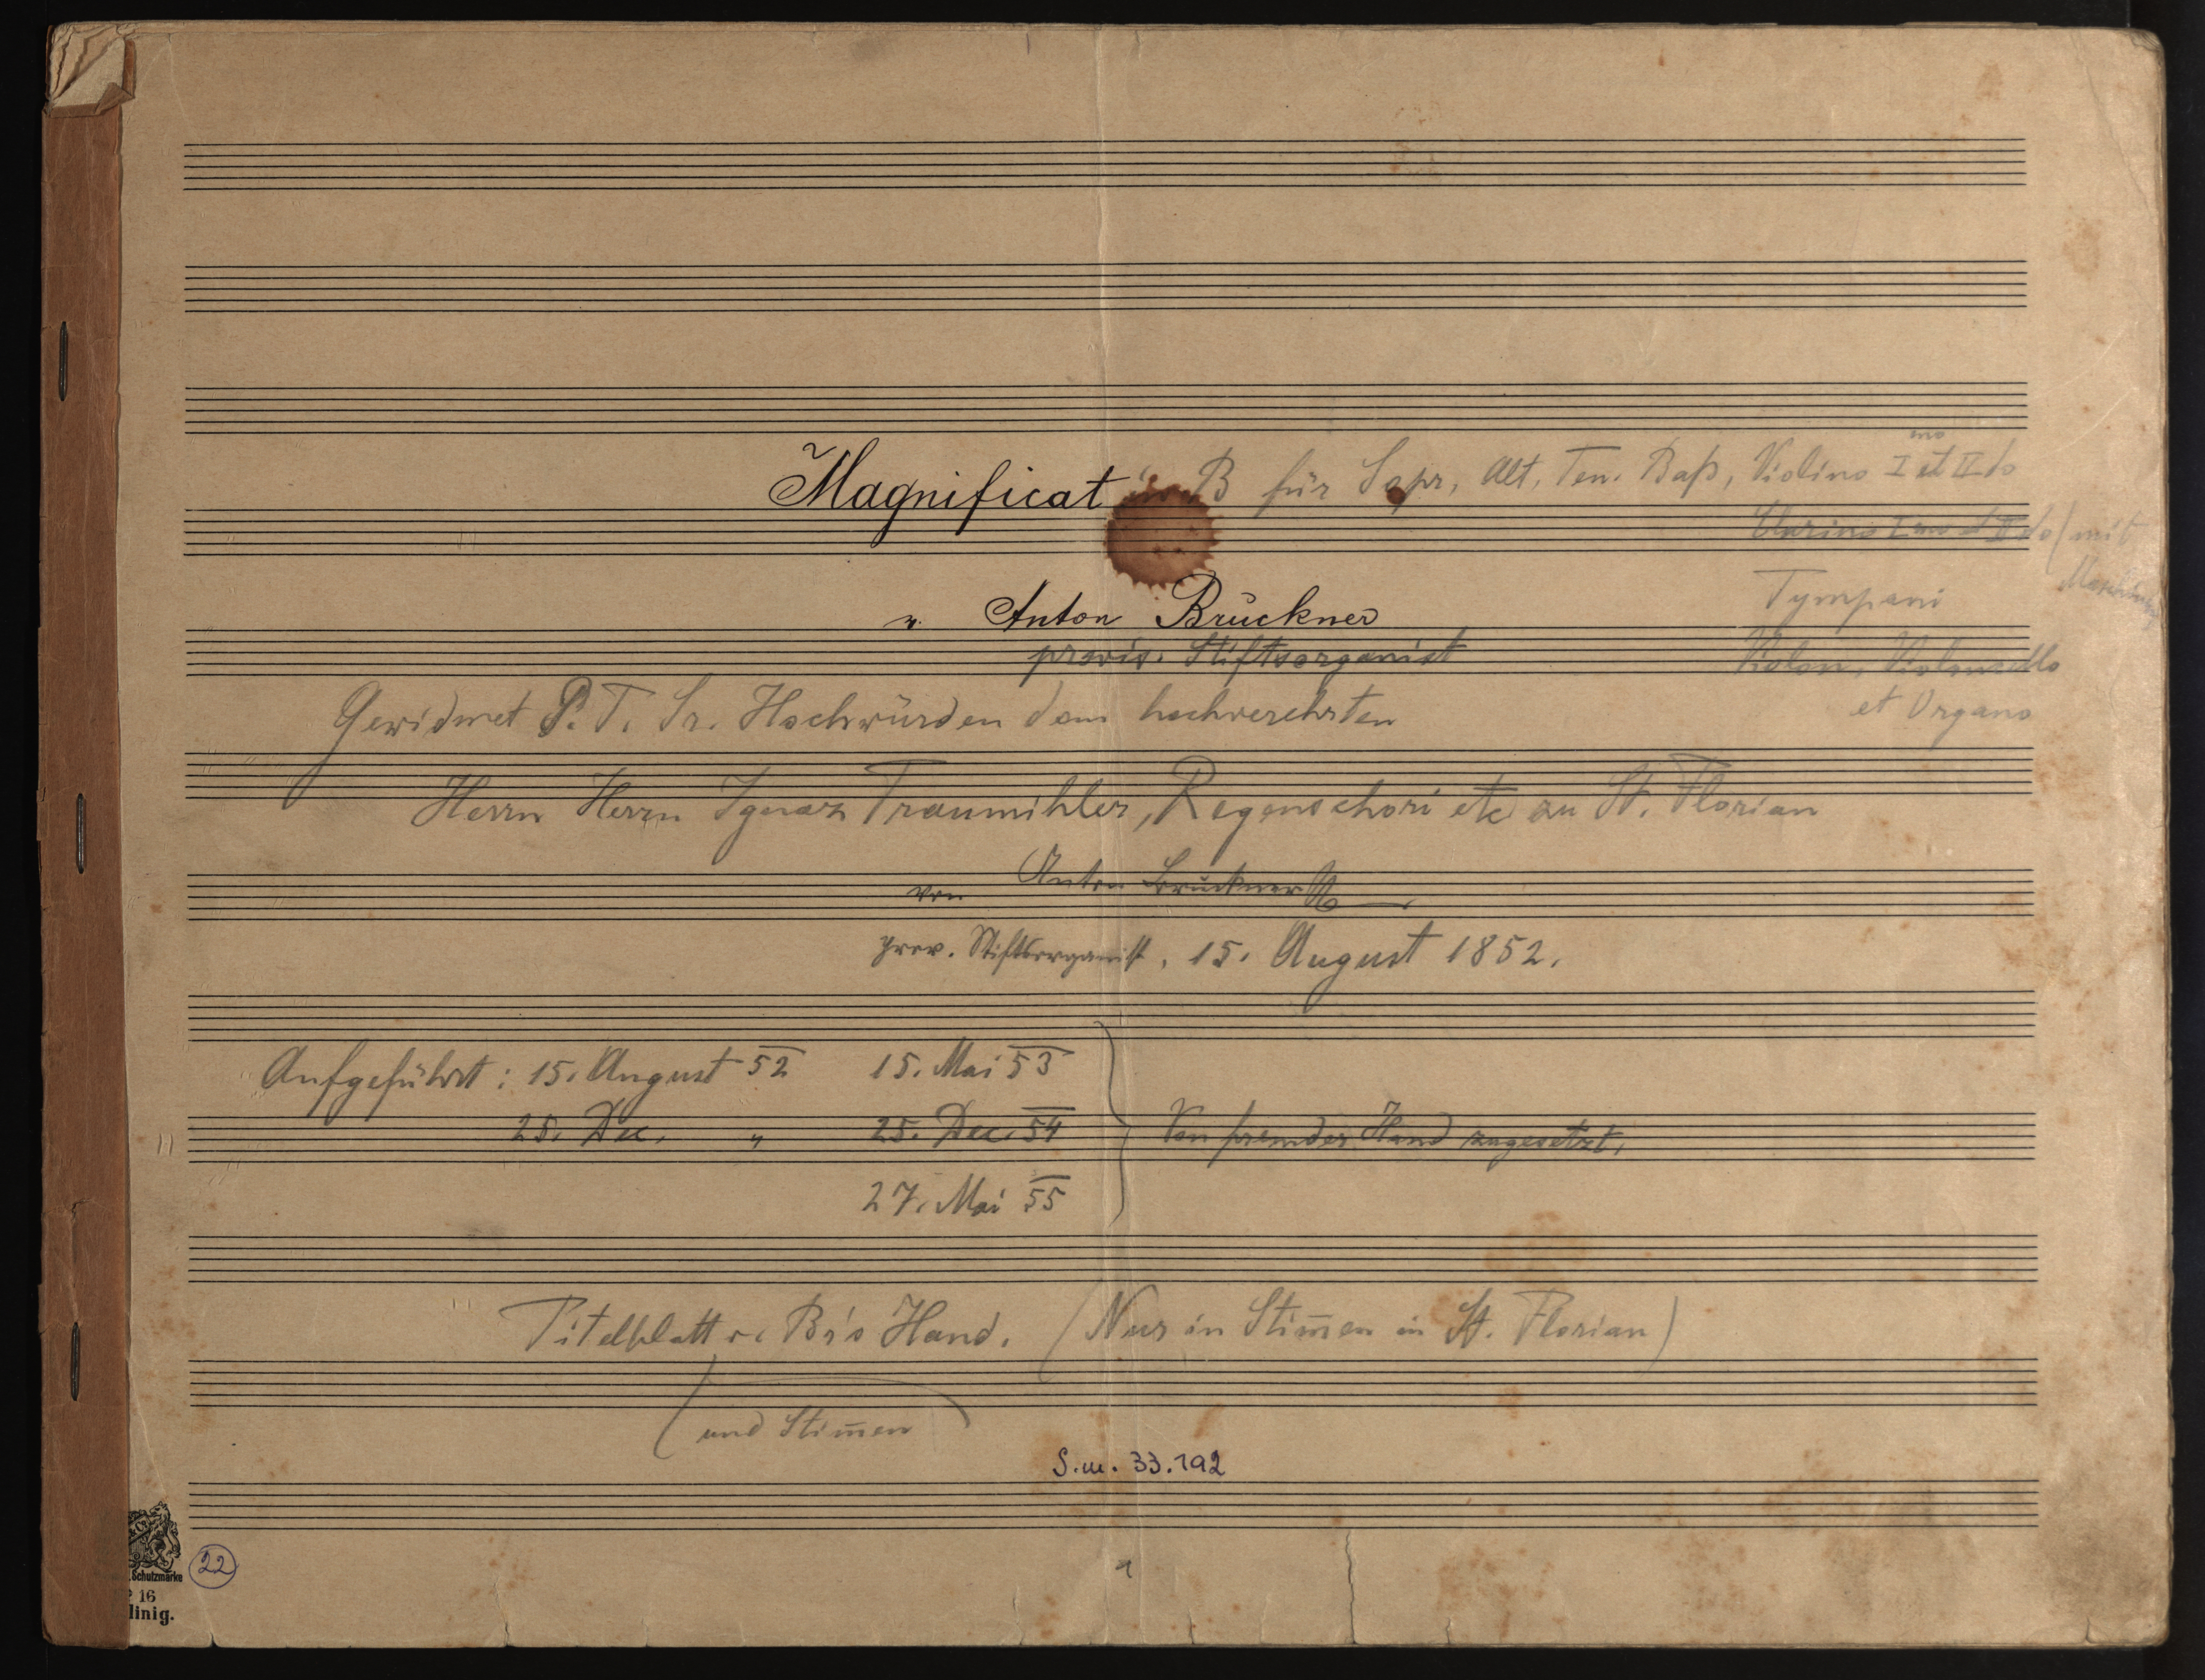 Magnificat in B für Sopr, Alt, Ten. Baß, Violino I mo et II do
Clarino I mo et II do (mit
Tympani
Violon, Violoncello
et Organo
v. Anton Bruckner
provis. Stiftsorganist
Gewidmet P. T. Sr. Hochwürden dem hochverehrten
Herrn Herrn Ignaz Traumihler, Regenschori etc zu St. Florian
von Anton Bruckner
prov. Stiftsorganist, 15. August 1852.
Aufgeführt: 15. August 52 15. Mai 53
25. Dec. " 25. Dec. 54
27. Mai 55
Von fremder Hand zugesetzt.
Titelblatt v. Br's Hand. (Nur in Stim̄en in St. Florian)
(und Stim̄en
S.m. 33.192
& Co
Schutzmarke
22
16
linig.
1